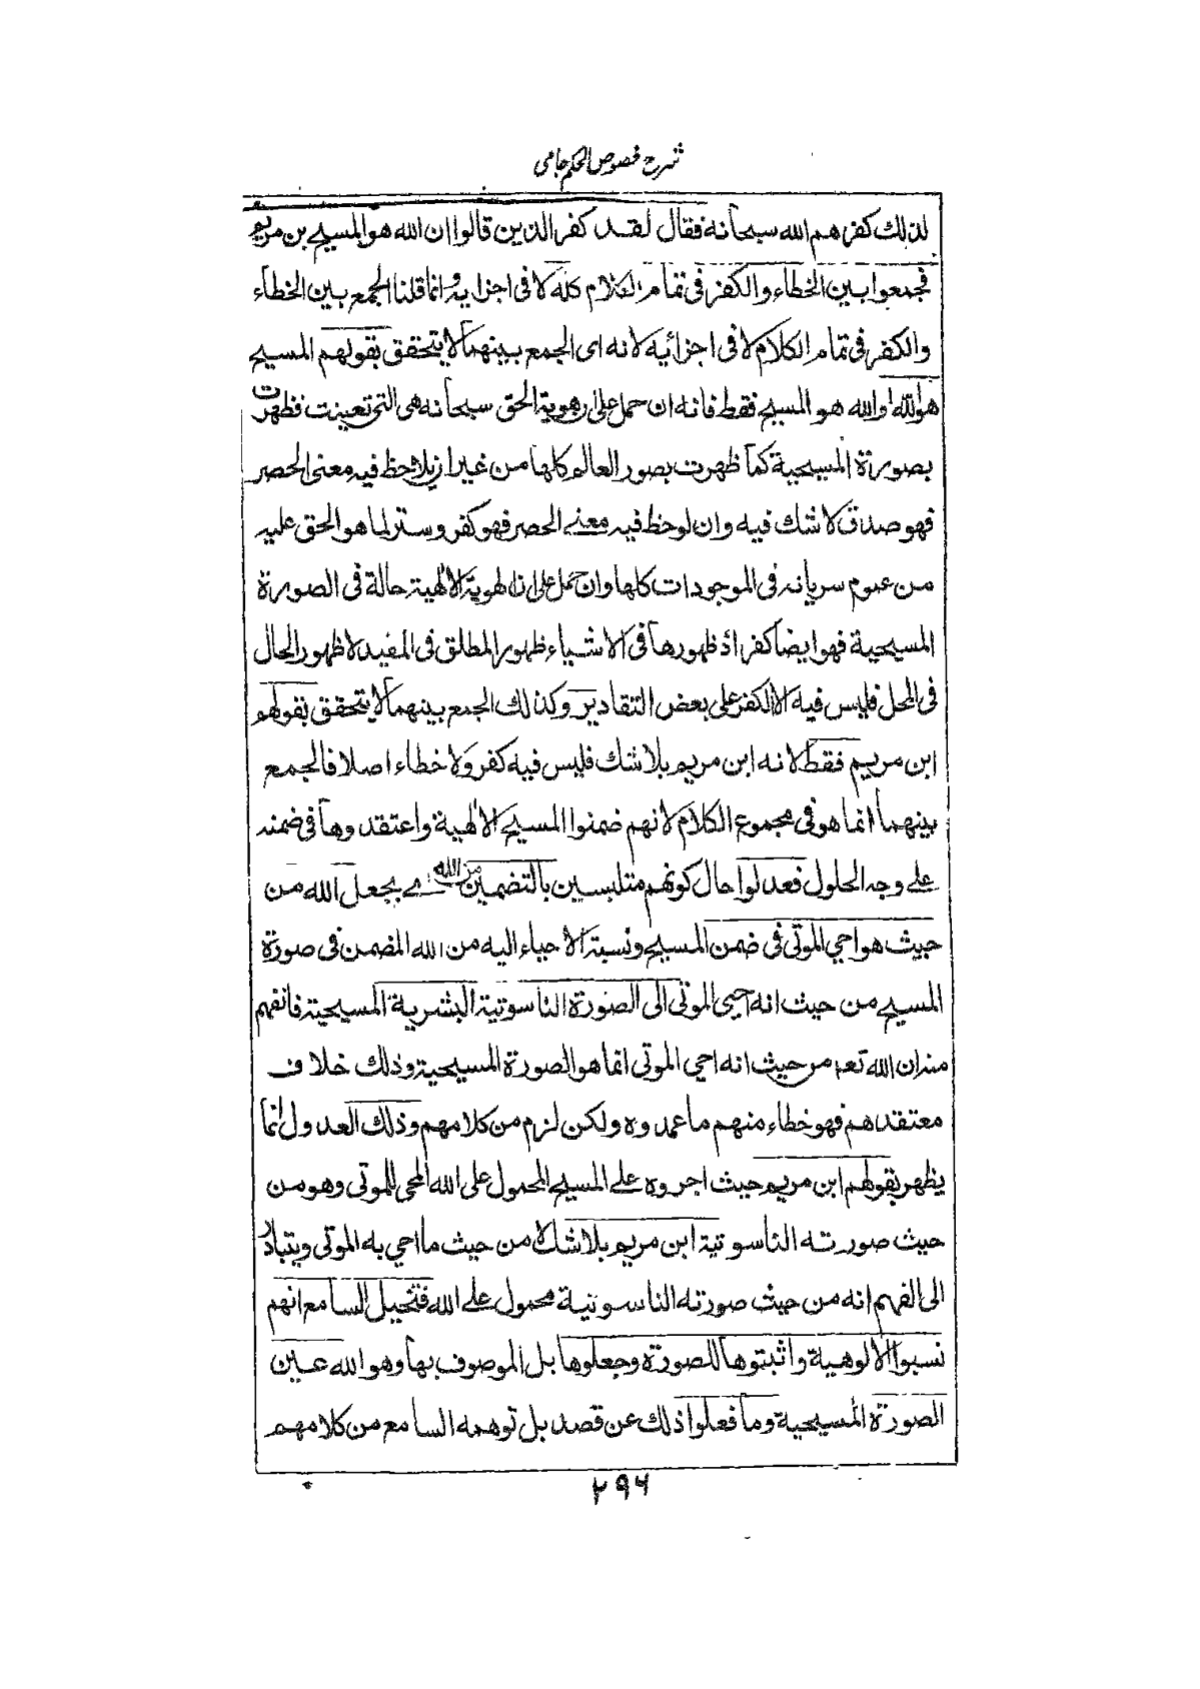 شرح فصوص الحكم جامى
لذلك كفرهم الله سبحانه فقال لقد كفر الذين قالوا ان الله هو المسيح بن مريم
فجمعوا بين الخطاء والكفر فى تمام الكلام كله لا فى اجزايه وانما قلنا الجمع بين الخطاء
والكفر فى تمام الكلام لا فى اجزائيه لانه اى الجمع بينهما لا يتحقق بقولهم المسيح
هو الله او الله هو المسيح فقط فانه ان حمل على ان هوية الحق سبحانه هى التى تعينت فظهرت
بصورة المسيحية كما ظهرت بصور العالم كلها من غير ان يلاحظ فيه معنى الحصر
فهو صدق لا شك فيه وان لوحظ فيه معنى الحصر فهو كفر وستر لما هو الحق عليه
من عموم سريانه فى الموجودات كلها وان حمل على ان الهوية الالهية حالة فى الصورة
المسيحية فهو ايضا كفر اذ ظهورها فى الاشياء ظهور المطلق فى المقيد لا ظهور الحال
فى المحل فليس فيه الا الكفر على بعض التقادير وكذلك الجمع بينهما لا يتحقق بقولهم
ابن مريم فقط لانه ابن مريم بلا شك فليس فيه كفر ولا خطاء اصلا فالجمع
بينهما انما هو فى مجموع الكلام لانهم ضمنوا المسيح الالهية واعتقدوها فى ضمنه
على وجه الحلول فعدلوا حال كونهم متلبسين بالتضمين من الله اے بجعل الله من
حيث هو احي الموتى فى ضمن المسيح ونسبة الاحياء اليه من الله المضمن فى صورة
المسيح من حيث انه احيى الموتى الى الصورة الناسوتية البشرية المسيحية فانفهم
منه ان الله تعـ من حيث انه احي الموتى انما هو الصورة المسيحية وذلك خلاف
معتقدهم فهو خطاء منهم ما عمدوه ولكن لزم من كلامهم وذلك العدول انما
يظهر بقولهم ابن مريم حيث اجروه على المسيح المحمول على الله المحي للموتى وهو من
حيث صورته الناسوتية ابن مريم بلا شك لا من حيث ما احي به الموتى ويتبادر
الى الفهم انه من حيث صورته الناسوتية محمول على الله فتخيل السامع انهم
نسبوا الالوهية واثبتوها للصورة وجعلوها بل الموصوف بها وهو الله عين
الصورة المسيحية وما فعلوا ذلك عن قصد بل توهمه السامع من كلامهم
۲۹۶